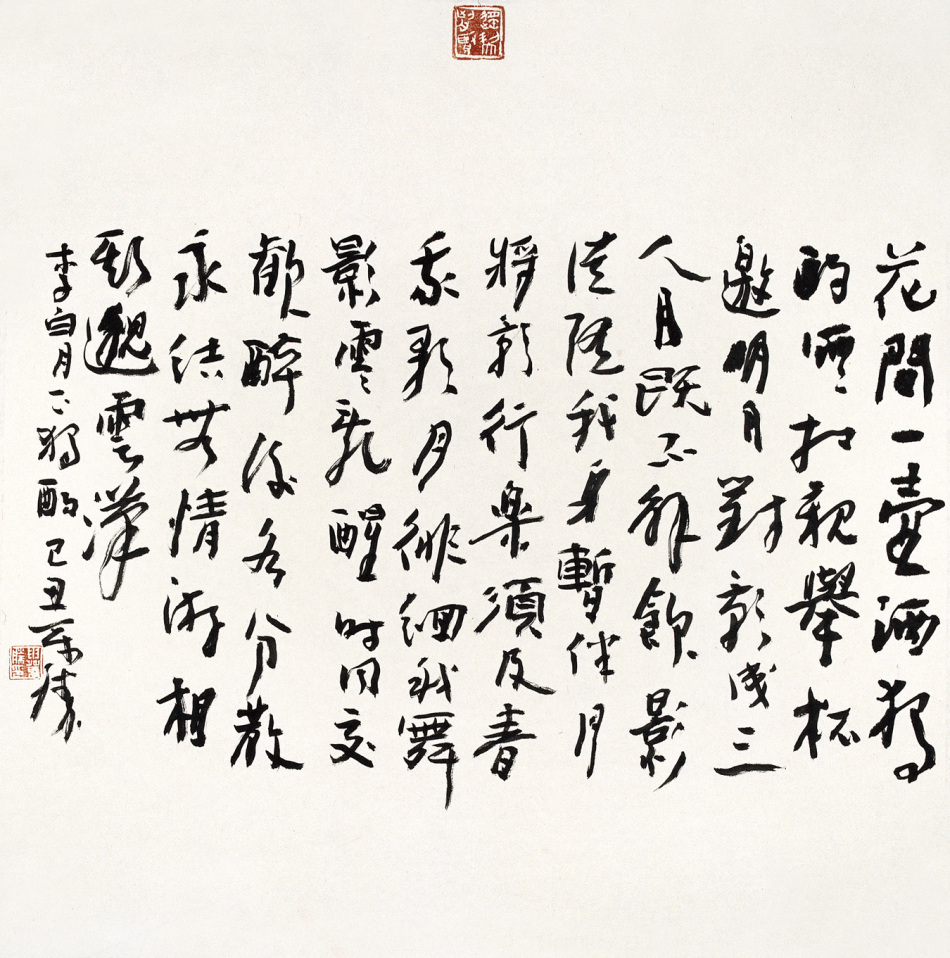 花間一壺酒獨
酌無相親舉杯
邀明月對影成三
人月既不解飲影
徒隨我身暫伴月
將影行樂須及春
我歌月徘徊我舞
影零亂醒時同交
歡醉後各分散
永結無情游相
期邈雲漢
李白月下獨酌 己丑